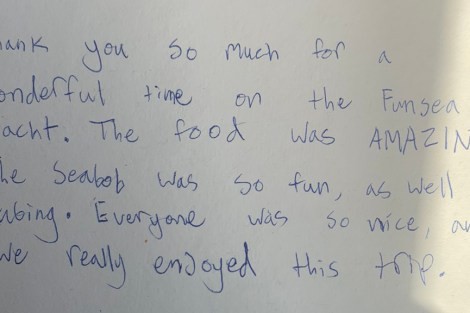 ank you so much for a
onderful time on the Funsea
acht. The food was AMAZIN
he Seabob was so fun, as well
ubing. Everyone was so nice, an
We really enjoyed this trip.